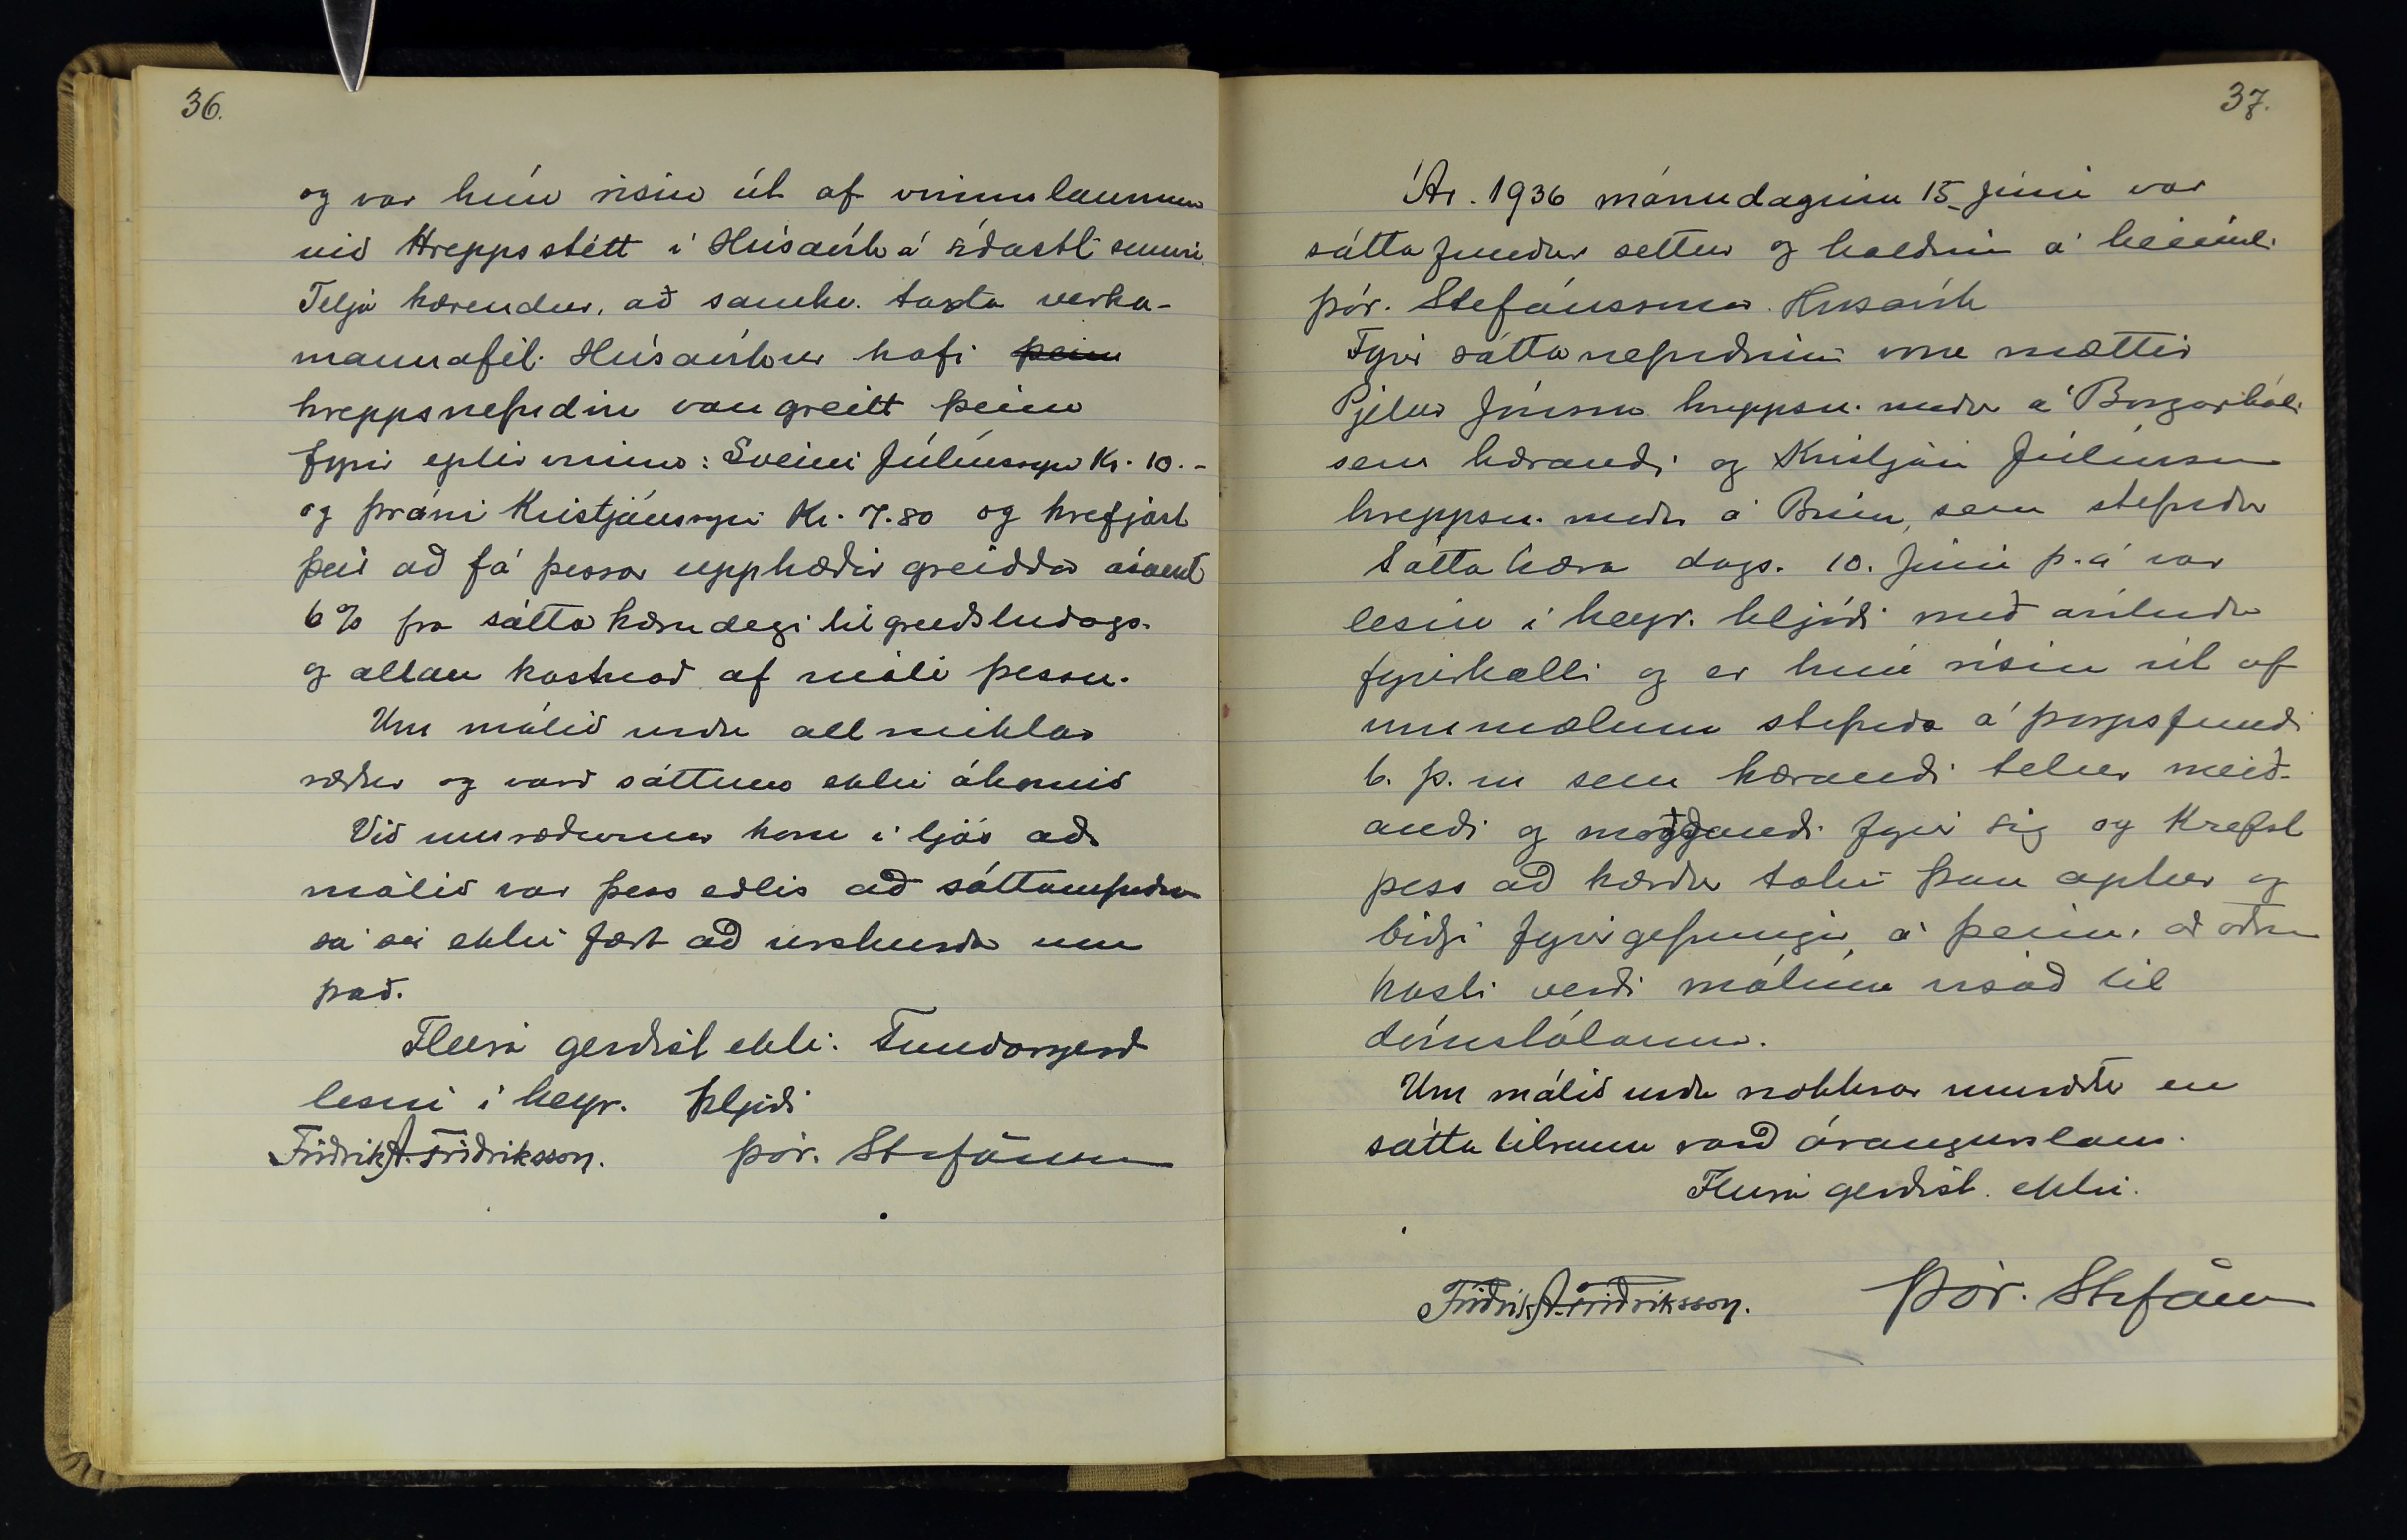 36.
og var hún risin út af vinnulaunum
við Hreppsstétt í Húsavík á síðastl sumri.
Telja kærendur, að samkv. taxta verka-
mannafél. Húsavíkur hafi þeim
hreppsnefndin vangreitt þeim
fyrir eptirvinnu: Sveini Júlíussyni Kr. 10.-
og Þráni Kristjánssyni Kr. 7.80 og krefjast
þeir að fá þessar upphæðir greiddar ásamt
6% frá sáttakærudegi til greiðsludags.
og allan kostnað af máli þessu.
Um málið urðu allmiklar
ræður og varð sáttum ekki ákomið
Við umræðurnar kom í ljós að
málið var þess eðlis að sáttanefndin
sá sér ekki fært að úrskurða um
það.
Fleira gerðist ekki. Fundargerð
lesin í heyr. hljóði
Friðrik A. Friðriksson. Þór. Stefánsson
37.
Ár. 1936 mánudaginn 15. Júní var
sáttafundur settur og haldinn á heimili
Þór. Stefánssonar. Húsavík
Fyrir sáttanefndinni voru mættir
Pjetur Jónsson hreppsn. maður á Borgarhóli
sem kærandi og Kristján Júlíusson
hreppsn. maður á Brún, sem stefndur
Sáttakæra dags. 10. Júní þ.á var
lesin í heyr. hljóði með árituðu
fyrirkalli og er hún risin út af
ummælum stefnda á þorpsfundi
6. þ.m sem kærandi telur meið-
andi og móðgandi fyrir sig og Krefst
þess að kærður taki þau aptur og
biðji fyrirgefningar á þeim, að öðrum
kosti verði málinu vísað til
dómstólanna.
Um málið urðu nokkrar umræður en
sáttatilraun varð árangurslaus.
Fleira gerðist ekki.
Friðrik A. Friðriksson. Þór. Stefánsson